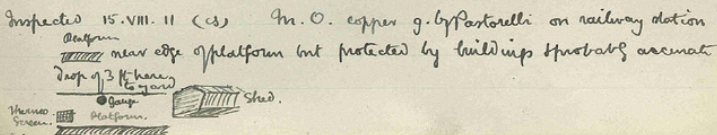 Inspected 15.VIII.11 (CS) M.O. copper g. by Pastorelli on railway station
Platform
near edge of platform but protected by buildings & probably accurate
Drop of 3 ft here
to yard
Gauge
Shed.
Thermo.
Screen.
Platform.